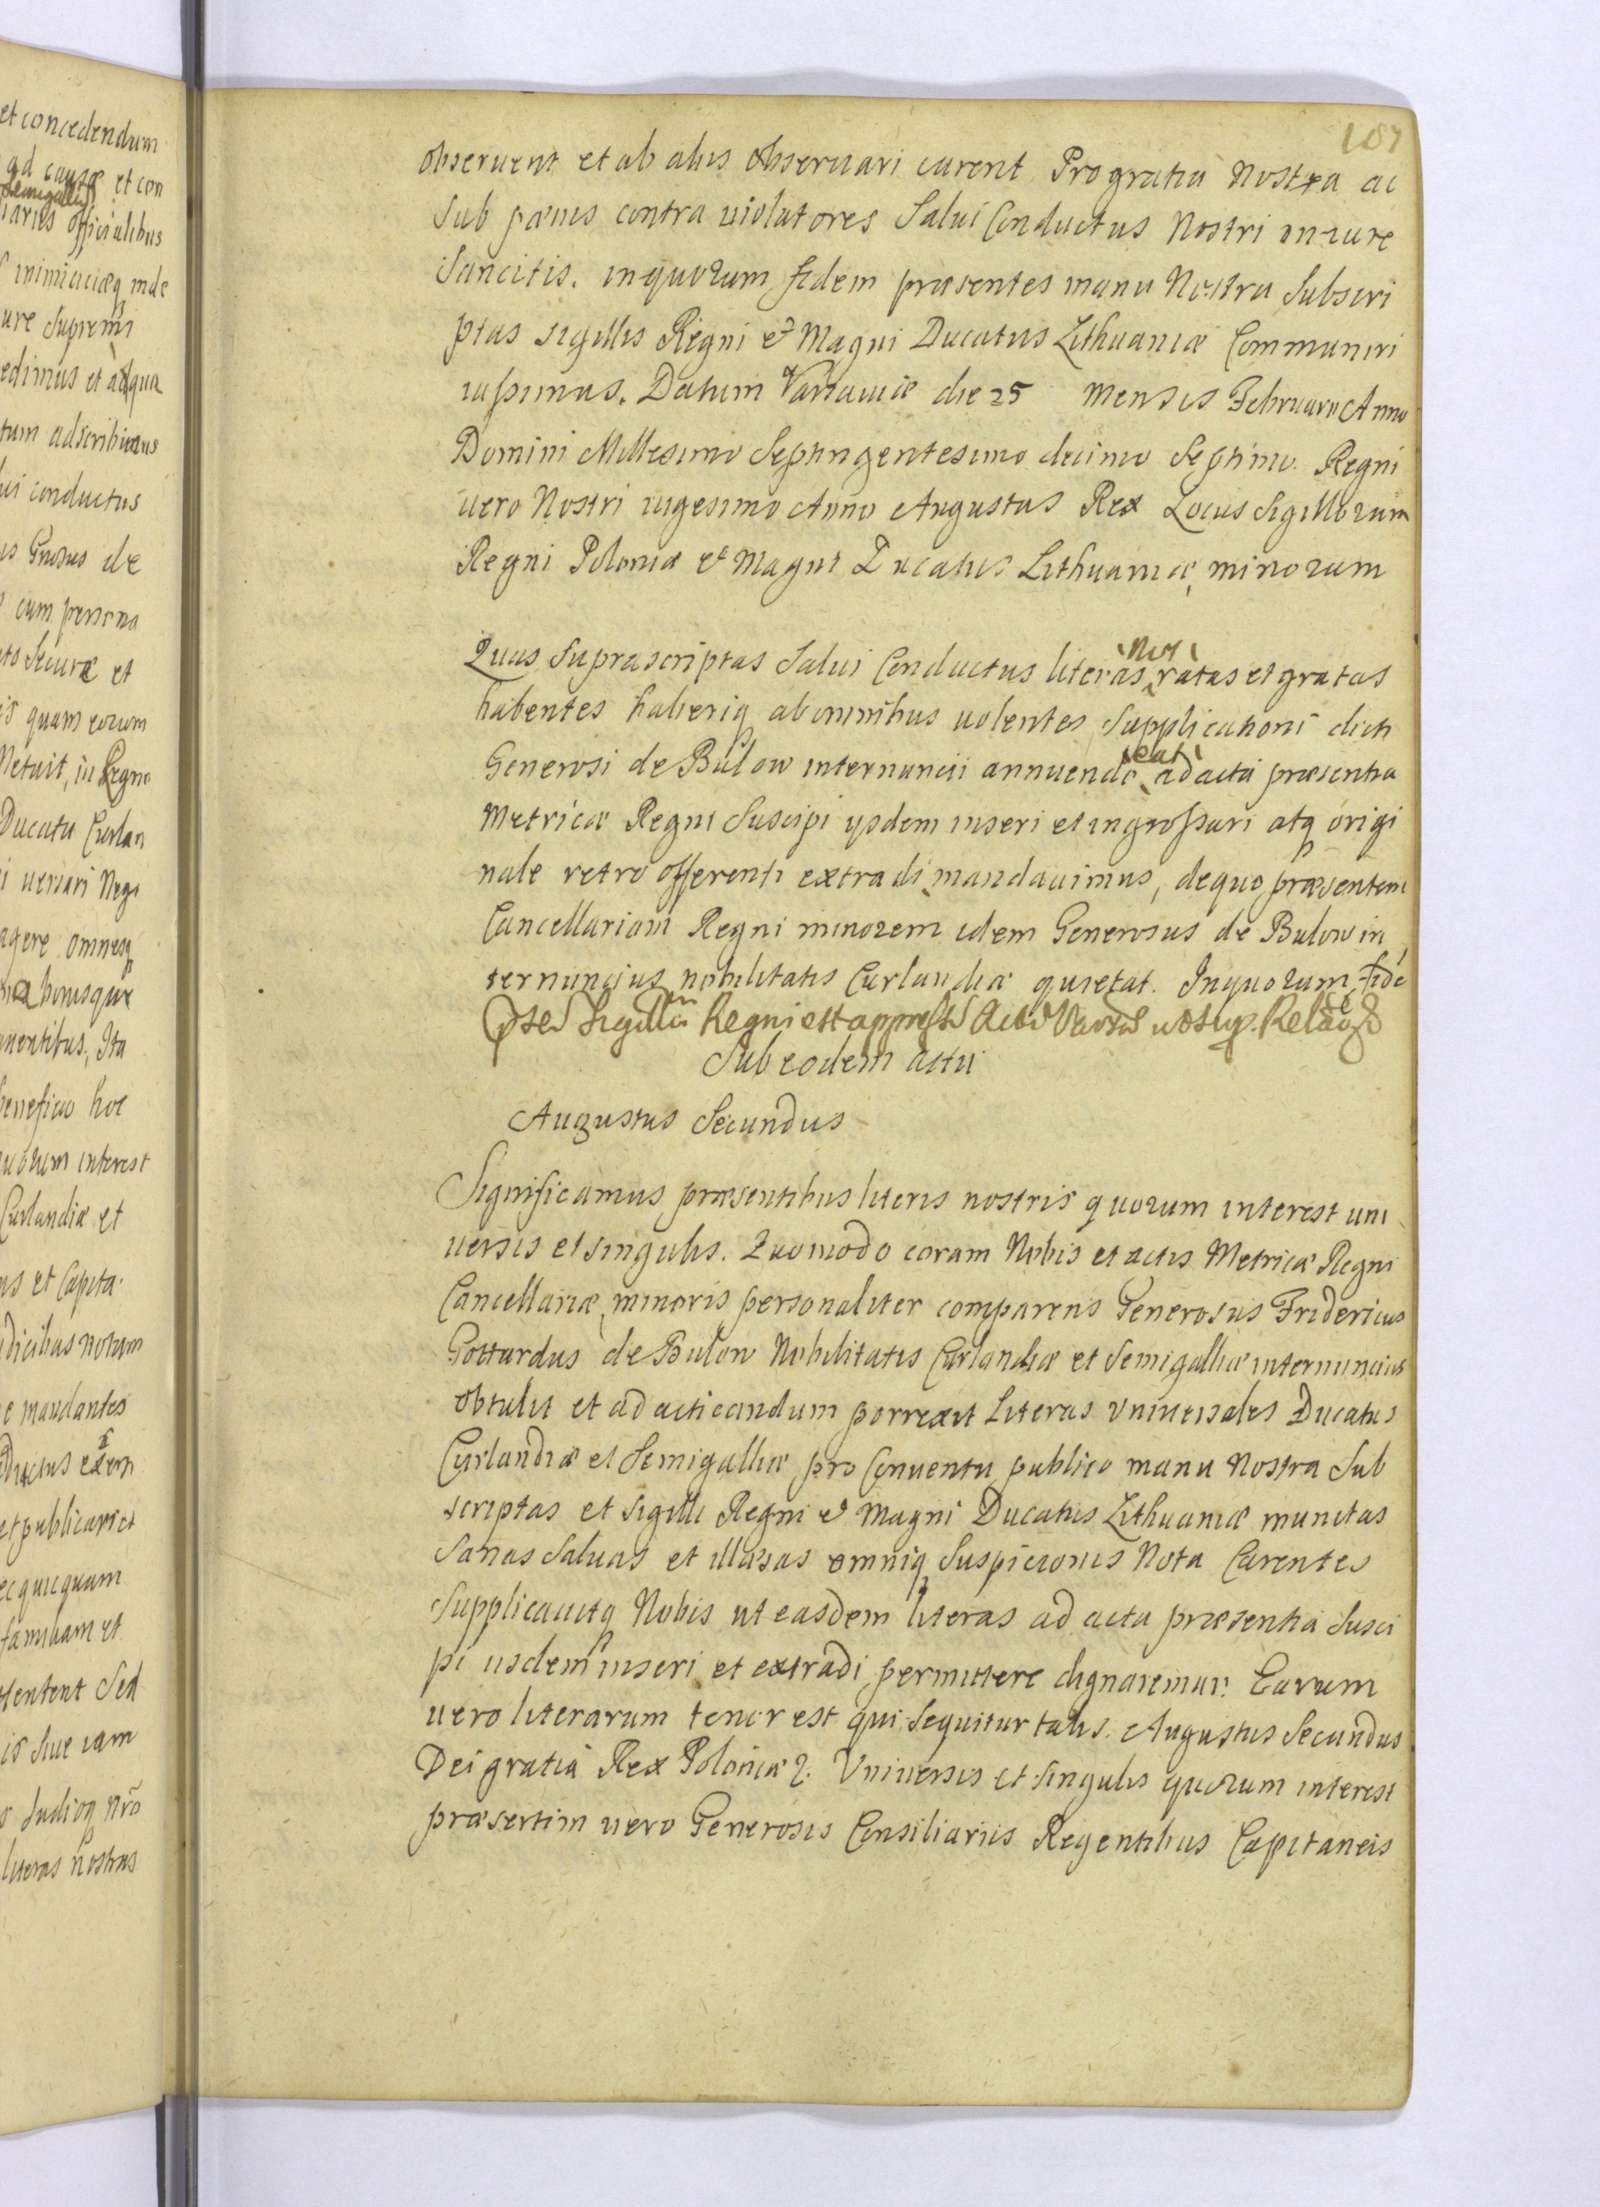 et concedendum
ad causæ et con
Semigalliæ
iariis officialibus
inimicitiæq inde
ure Supremi
edimus et adqua
tum adscribimus
ui conductus
us Gnosus de
cum persona
to Securæ et
is quam eorum
Metuit, in Regno
Ducatu Curlan
i uersari Nego
agere omnesq
bonisque
nentibus, Ita
beneficio hoc
uorum interest
Curlandiæ et
us et Capita
dicibus notum
e mandantes
ductus
et publicari et
ec quicquam
familiam et
tentent Sed
is siue iam
Iudiciq nro
literas nostras
187
obseruent et ab aliis obseruari curent Pro gratia Nostra ac
Sub pænis contra uiolatores Salui Conductus Nostri in iure
Sancitis. in quorum fidem præsentes manu Nostra Subscri
ptas sigillis Regni et Magni Ducatus Lithuaniæ Communiri
iussimus. Datum Varsauiæ die 25 Mensis Februarii Anno
Domini Millesimo Septingentesimo decimo Septimo. Regni
uero Nostri uigesimo Anno Augustus Rex Locus Sigillorum
Regni Poloniæ et Magni Ducatus Lithuaniæ minorum
Quas Suprascriptas Salui Conductus literas Nos ratas et gratas
habentes haberiq ab omnibus uolentes Supplicationi dicti
Generosi de Bulow internuncii annuendo eas ad acta præsentia
Metricæ Regni Suscipi ysdem inseri et ingrossari atq origi
nale retro offerenti extradi mandauimus, de quo præsentem
Cancellariam Regni minorem idem Generosus de Bulow in
ternuncius nobilitatis Curlandiæ quietat. In quorum fide
Sigillu Regni est appress
Sub eodem actu
Augustus Secundus
Significamus præsentibus literis nostris quorum interest uni
uersis et singulis. Quomodo coram Nobis et actis Metricæ Regni
Cancellariæ minoris personaliter comparens Generosus Fridericus
Gottardus de Bulow Nobilitatis Curlandiæ et Semigalliæ internuncius
obtulit et ad acticandum porrexit Literas Vniuersales Ducatus
Curlandiæ et Semigalliæ pro Conuentu publico manu Nostra Sub
scriptas et sigilli Regni et Magni Ducatus Lithuaniæ munitas
Sanas Saluas et illæsas omniq Suspicionis Nota Carentes
Supplicauitq Nobis ut easdem literas ad acta præsentia Susci
pi iisdem inseri et extradi permittere dignaremur. Earum
uero literarum tenor est qui sequitur talis. Augustus Secundus
Dei gratia Rex Poloniæ &. Vniuersis et singulis quorum interest
præsertim uero Generosis Consiliariis Regentibus Capitaneis